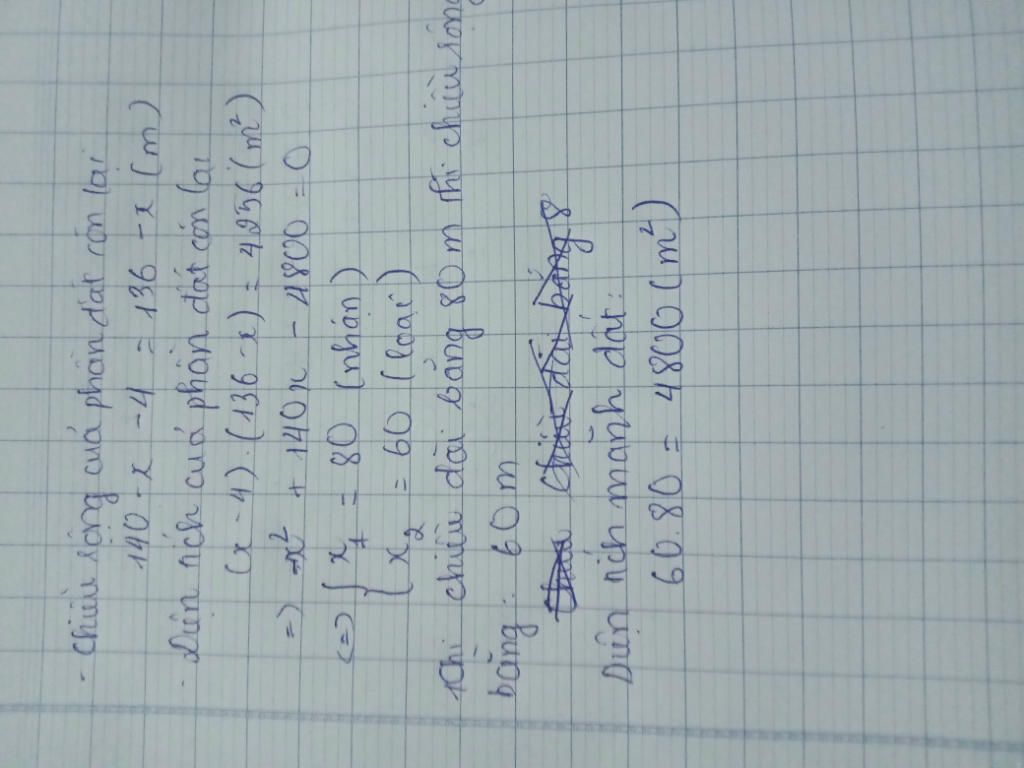 - Chiều rộng của phần đất còn lại
140 - x - 4 = 136 - x (m)
- Diện tích của phần đất còn lại
(x - 4).(136 - x) = 4256 (m²)
=> -x² + 140x - 4800 = 0
<=> { x₁ = 80 (nhận)
x₂ = 60 (loại)
Khi chiều dài bằng 80 m thì chiều rộng
bằng: 60 m
Diện tích mảnh đất:
60.80 = 4800 (m²)